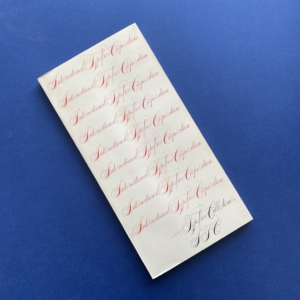 International Typeface Corporation
International Typeface Corporation
International Typeface Corporation
International Typeface Corporation
International Typeface Corporation
International Typeface Corporation
International Typeface Corporation
International Typeface Corporation
Typeface Collection
ITC